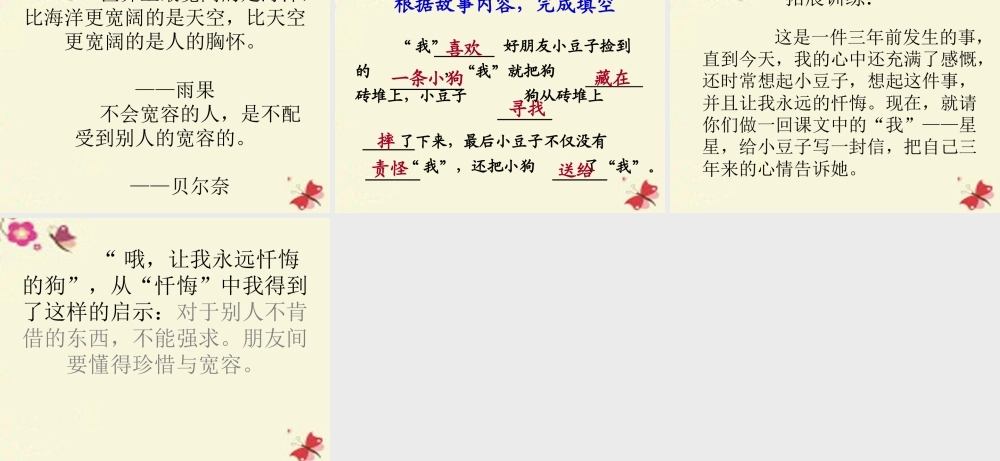 比海洋更宽阔的是天空，比天空
更宽阔的是人的胸怀。
——雨果
不会宽容的人，是不配
受到别人的宽容的。
——贝尔奈
根据故事内容，完成填空
“我”喜欢 好朋友小豆子捡到
的 一条小狗 “我”就把狗 藏在
砖堆上，小豆子 寻找 狗从砖堆上
摔了下来，最后小豆子不仅没有
责怪“我”，还把小狗 送给了“我”。
拓展训练：
这是一件三年前发生的事，
直到今天，我的心中还充满了感慨，
还时常想起小豆子，想起这件事，
并且让我永远的忏悔。现在，就请
你们做一回课文中的“我”——星
星，给小豆子写一封信，把自己三
年来的心情告诉她。
“ 哦，让我永远忏悔
的狗”，从“忏悔”中我得到
了这样的启示：对于别人不肯
借的东西，不能强求。朋友间
要懂得珍惜与宽容。